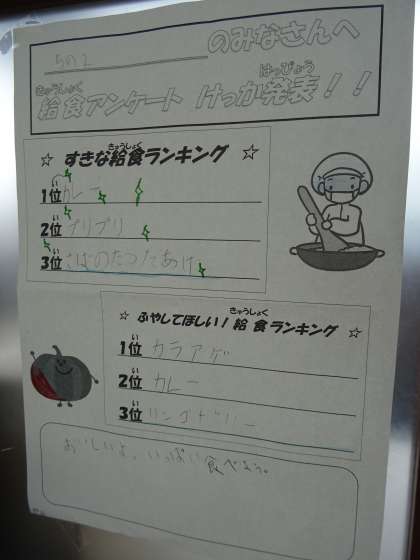 5の2 のみなさんへ
きゅうしょく はっぴょう
給食アンケート けっか発表！！
きゅうしょく
☆ すきな給食ランキング ☆
い
1位 カレー
い
2位 プリプリ
い
3位 さばのたつたあげ
きゅうしょく
☆ ふやしてほしい！給食ランキング ☆
い
1位 カラアゲ
い
2位 カレー
い
3位 リンゴゼリー
おいしいよ。いっぱい食べよう。